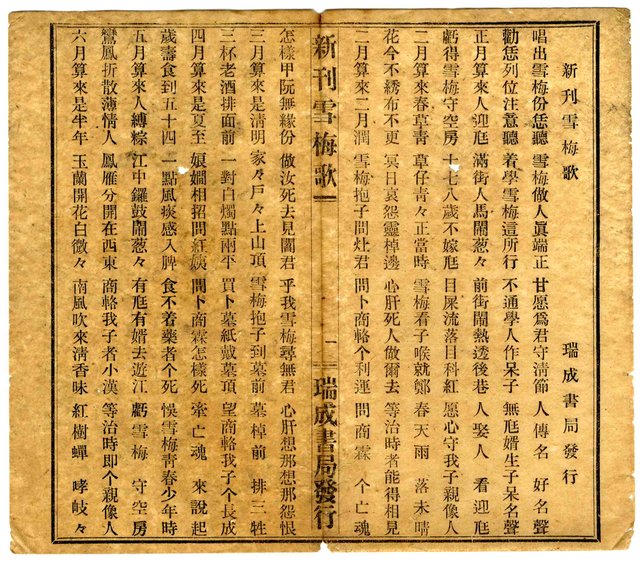 新刊雪梅歌　瑞成書局發行
唱出雪梅份恁聽　雪梅做人眞端正　甘愿為君守清節　人傳名　好名聲
勸恁列位注意聽　着學雪梅這所行　不通學人作呆子　無尫婿生子呆名聲
正月算來人迎尫　滿街人馬鬧葱々　前街鬧熱透後巷　人娶人　看迎尫
虧得雪梅守空房　十七八歲不嫁尫　目屎流落目科紅　愿心守我子親像人
二月算來春草靑　草仔靑々正當時　雪梅看子喉就鄭　春天雨　落未晴
花今不綉布不更　冥日哀怨靈棹邊　心肝死人做爾去　等治時者能得相見
二月算來二月潤　雪梅抱子問灶君　問卜商輅个利運　問商霖　个亡魂
新刊雪梅歌　一　瑞成書局發行
怎樣甲阮無緣份　做汝死去見閻君　乎我雪梅尋無君　心肝想那想那怨恨
三月算來是清明　家々戶々上山頂　雪梅抱子到墓前　墓棹前　排三牲
三杯老酒排面前　一對白燭點兩平　買卜墓紙戴墓頂　望商輅我子个長成
四月算來是夏至　娘嫺相招問紅姨　問卜商霖怎樣死　牽亡魂　來說起
歲壽食到五十四　一點風痰感入脾　食不着藥者个死　悞雪梅靑春少年時
五月算來人縛粽　江中鑼鼓鬧葱々　有尫有婿去遊江　虧雪梅　守空房
鸞鳳折散薄情人　鳳雁分開在西東　商輅我子者小漢　等治時卽个親像人
六月算來是半年　玉蘭開花白微々　南風吹來清香味　紅樹蟬　哮岐々